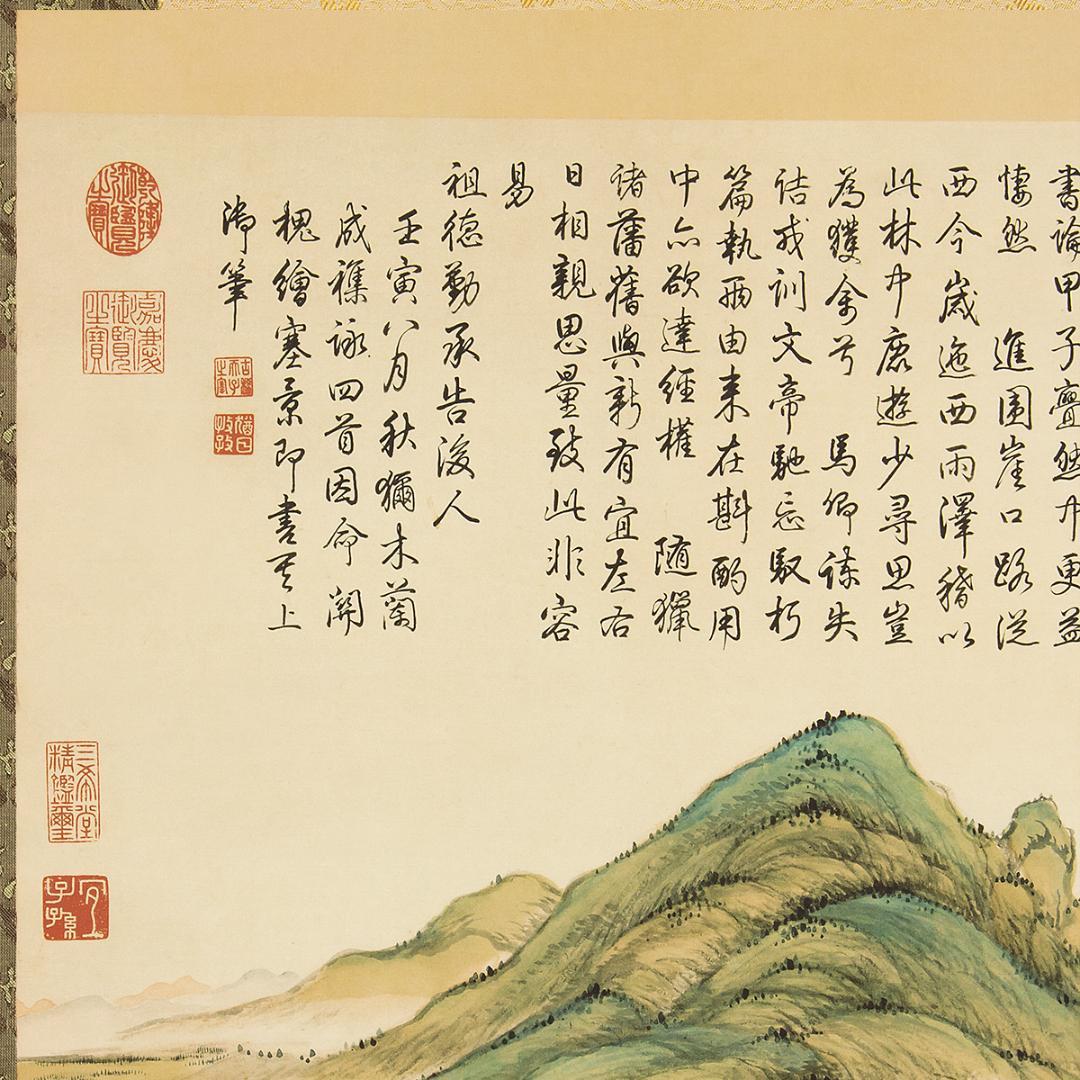 書論甲子然中更益
悽然 進圍崖口路從
西今歲迤西雨澤稽以
此林中鹿遊少尋思豈
為獲禽兮 馬卿諫失
詰戎訓文帝馳忘馭朽
篇執兩由來在斟酌用
中亦欲達經權 隨獵
諸藩舊與新有宜左右
日相親思量致此非容
易
祖德勤承告後人
壬寅八月秋獮木蘭
成襍詠四首因命關
槐繪塞景即書其上
御筆
古稀天子之寶
猶日孜孜
乾隆御覽之寶
嘉慶御覽之寶
三希堂精鑑璽
宜子孫